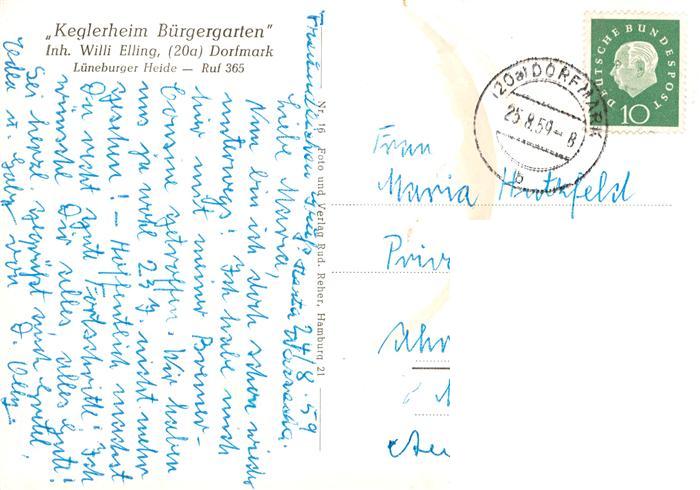 „Keglerheim Bürgergarten"
Inh. Willi Elling, (20a) Dorfmark
Lüneburger Heide — Ruf 365
24/8. 59
Liebe Maria,
Nun bin ich doch schon wieder
unterwegs! Ich habe mich
hier mit meiner Bremer-
Cousine getroffen. Wir haben
uns ja wohl 23 J. nicht mehr
gesehen! – Hoffentlich machst
Du recht gute Fortschritte! Ich
wünsche Dir alles alles Gute!
Sei herzl. gegrüßt auch
u. Gaby von
Nr. 16 Foto und Verlag Rud. Reher, Hamburg 21
(20a) DORFMARK
25.8.59 – 8
b
DEUTSCHE BUNDESPOST
10
Frau
Maria